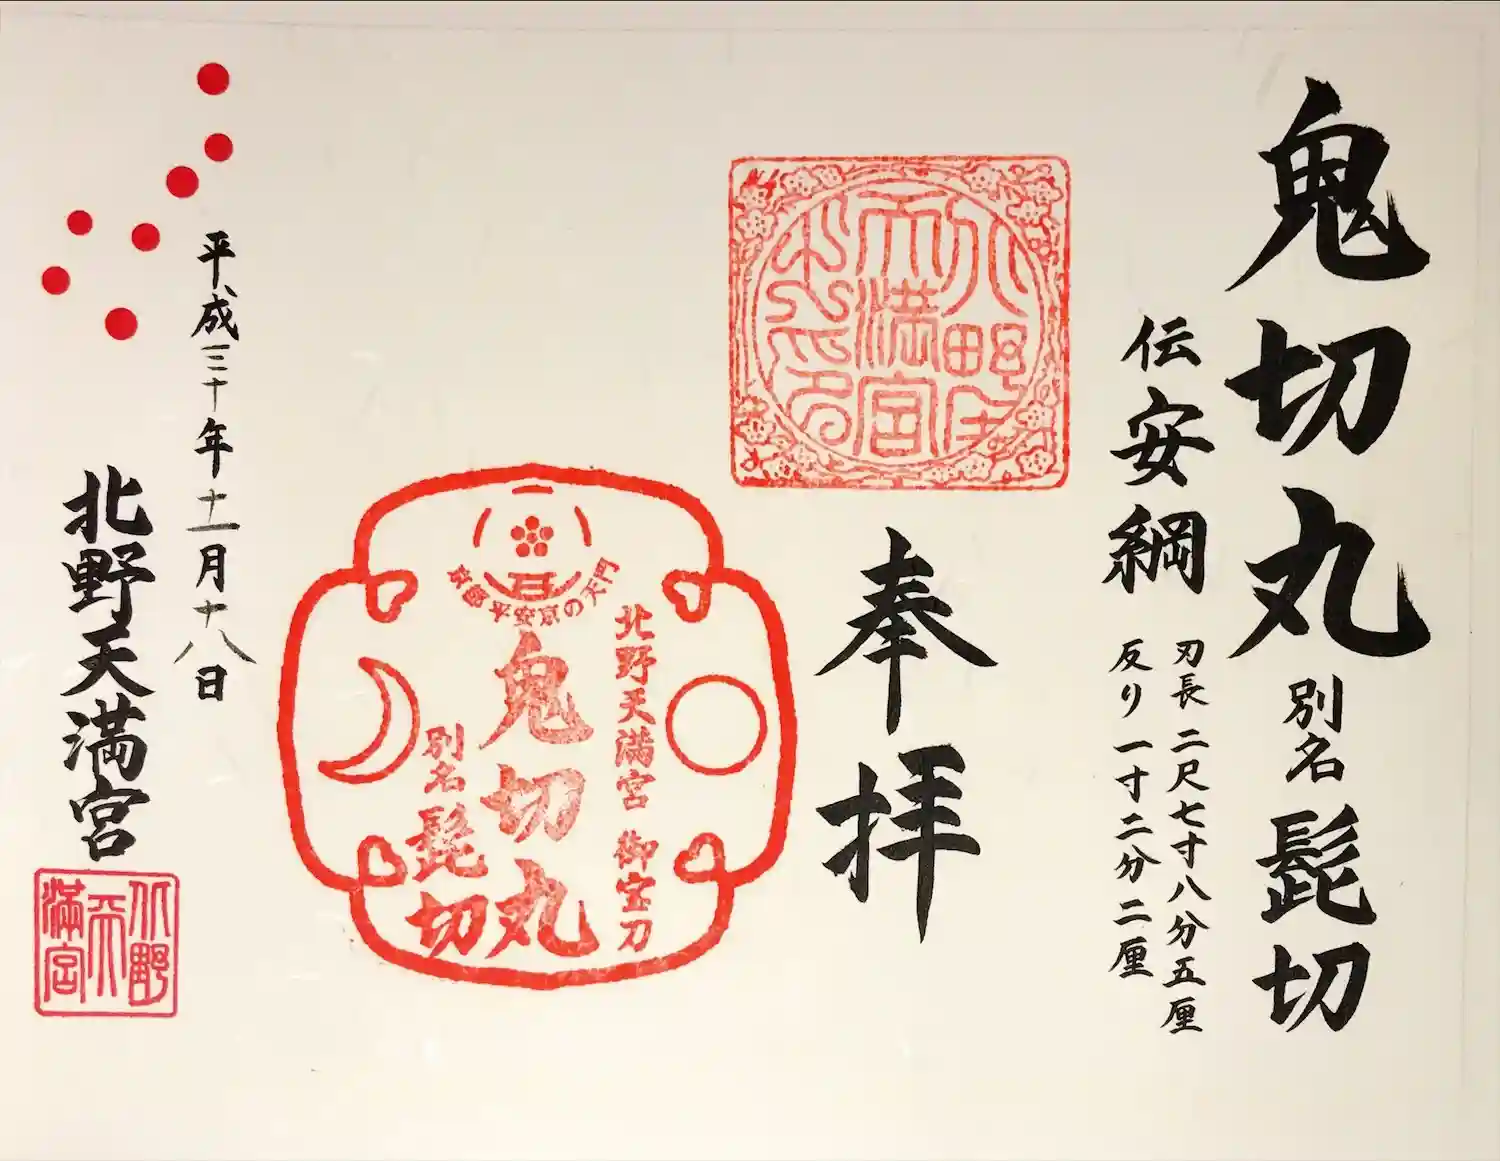 鬼切丸 別名 髭切
伝 安綱
刃長 二尺七寸八分五厘
反り 一寸二分二厘
奉拝
北野
天満宮
京都平安京の天門
北野天満宮 御宝刀
鬼切丸
別名 髭切
平成三十年十一月十八日
北野天満宮
北野
天
満宮